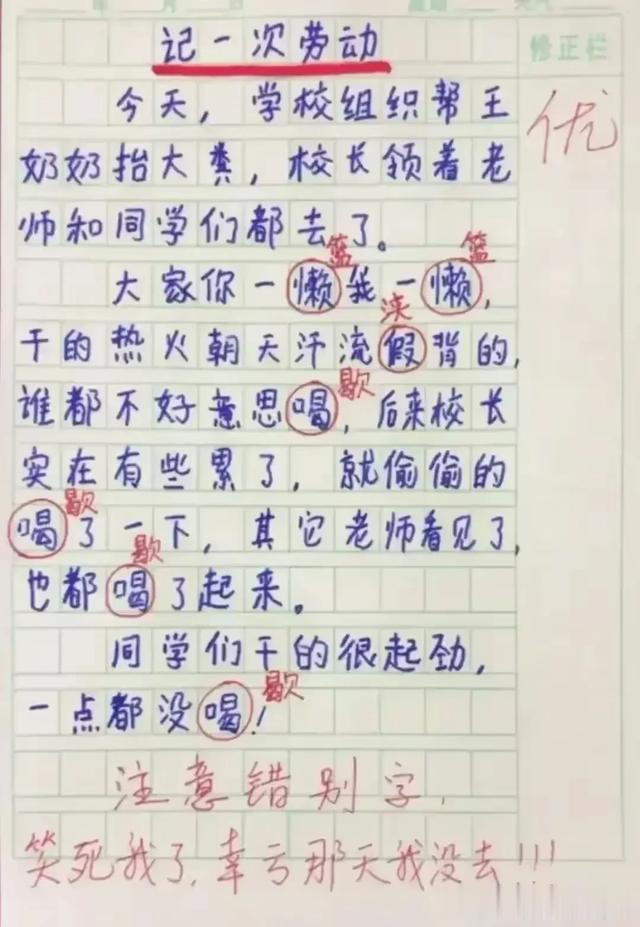 记一次劳动
修正栏
今天，学校组织帮王
优
奶奶抬大粪，校长领着老
师和同学们都去了。
篮 篮
大家你一懒我一懒，
浃
干的热火朝天汗流假背的，
歇
谁都不好意思喝，后来校长
实在有些累了，就偷偷的
歇
喝了一下，其它老师看见了，
歇
也都喝了起来。
同学们干的很起劲，
歇
一点都没喝！
注意错别字，
笑死我了，幸亏那天我没去!!!